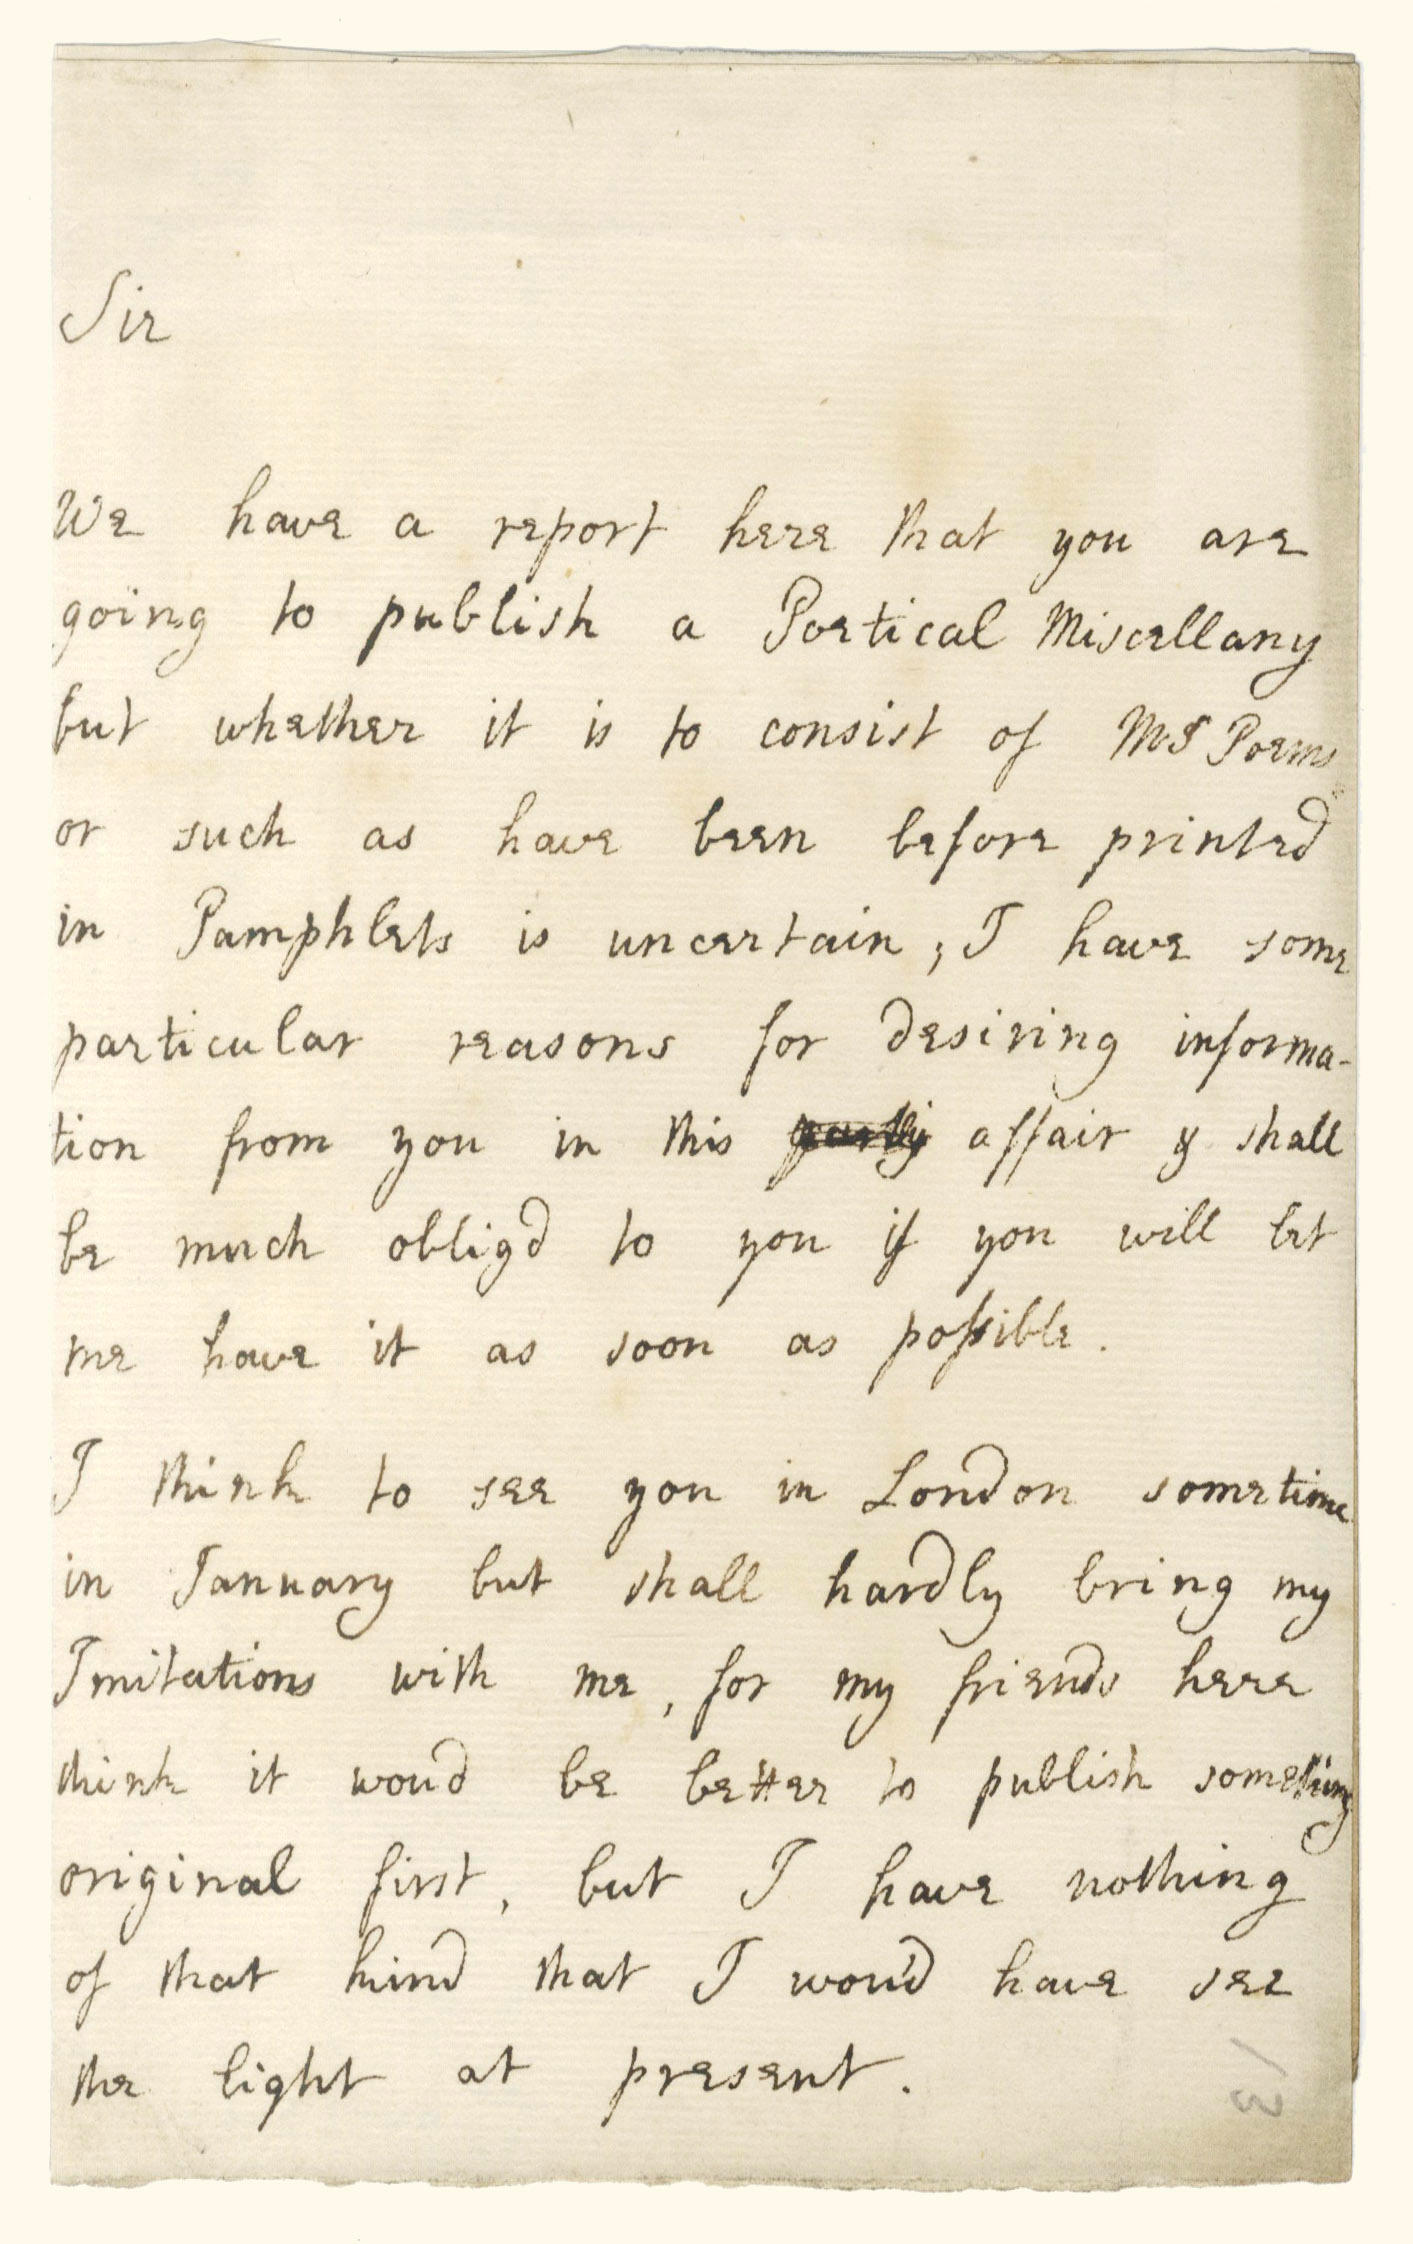 Sir
We have a report here that you are
going to publish a Poetical Miscellany
but whether it is to consist of MS Poems
or such as have been before printed
in Pamphlets is uncertain; I have some
particular reasons for desiring informa-
tion from you in this affair & shall
be much obligd to you if you will let
me have it as soon as possible.
I think to see you in London sometime
in January but shall hardly bring my
Imitations with me, for my friends here
think it woud be better to publish something
original first, but I have nothing
of that kind that I wou'd have see
the light at present.
13